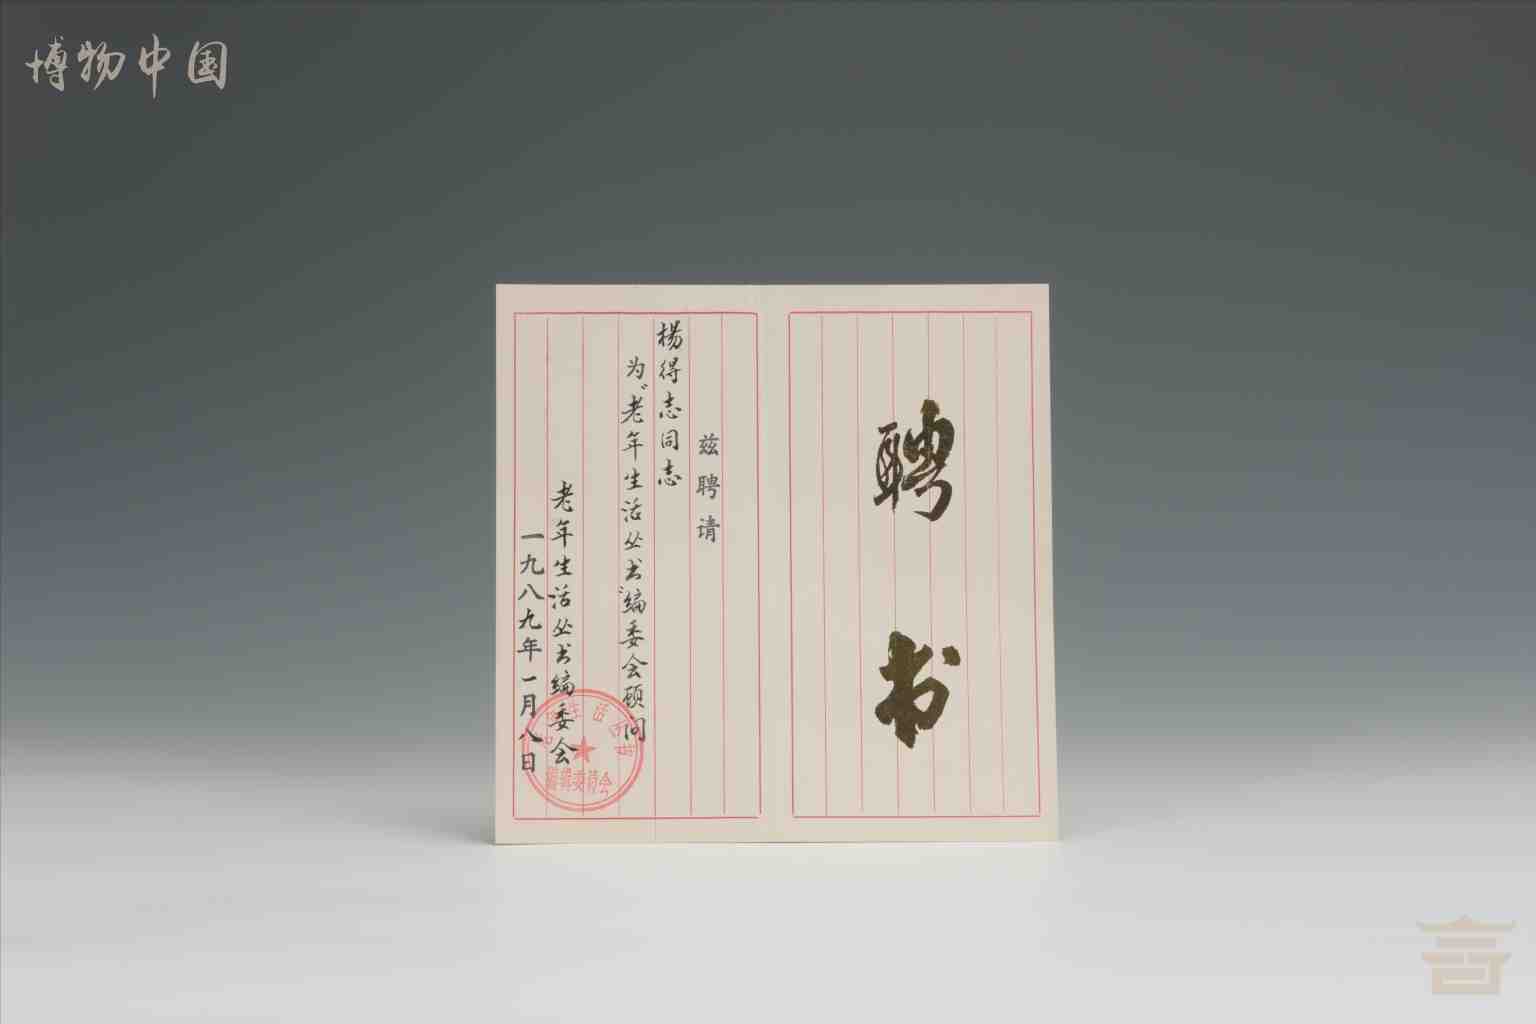 博物中国
聘书
兹聘请
楊得志同志
为“老年生活丛书”编委会顾问
老年生活丛书编委会
一九八九年一月八日
老年生活丛书
编辑委员会